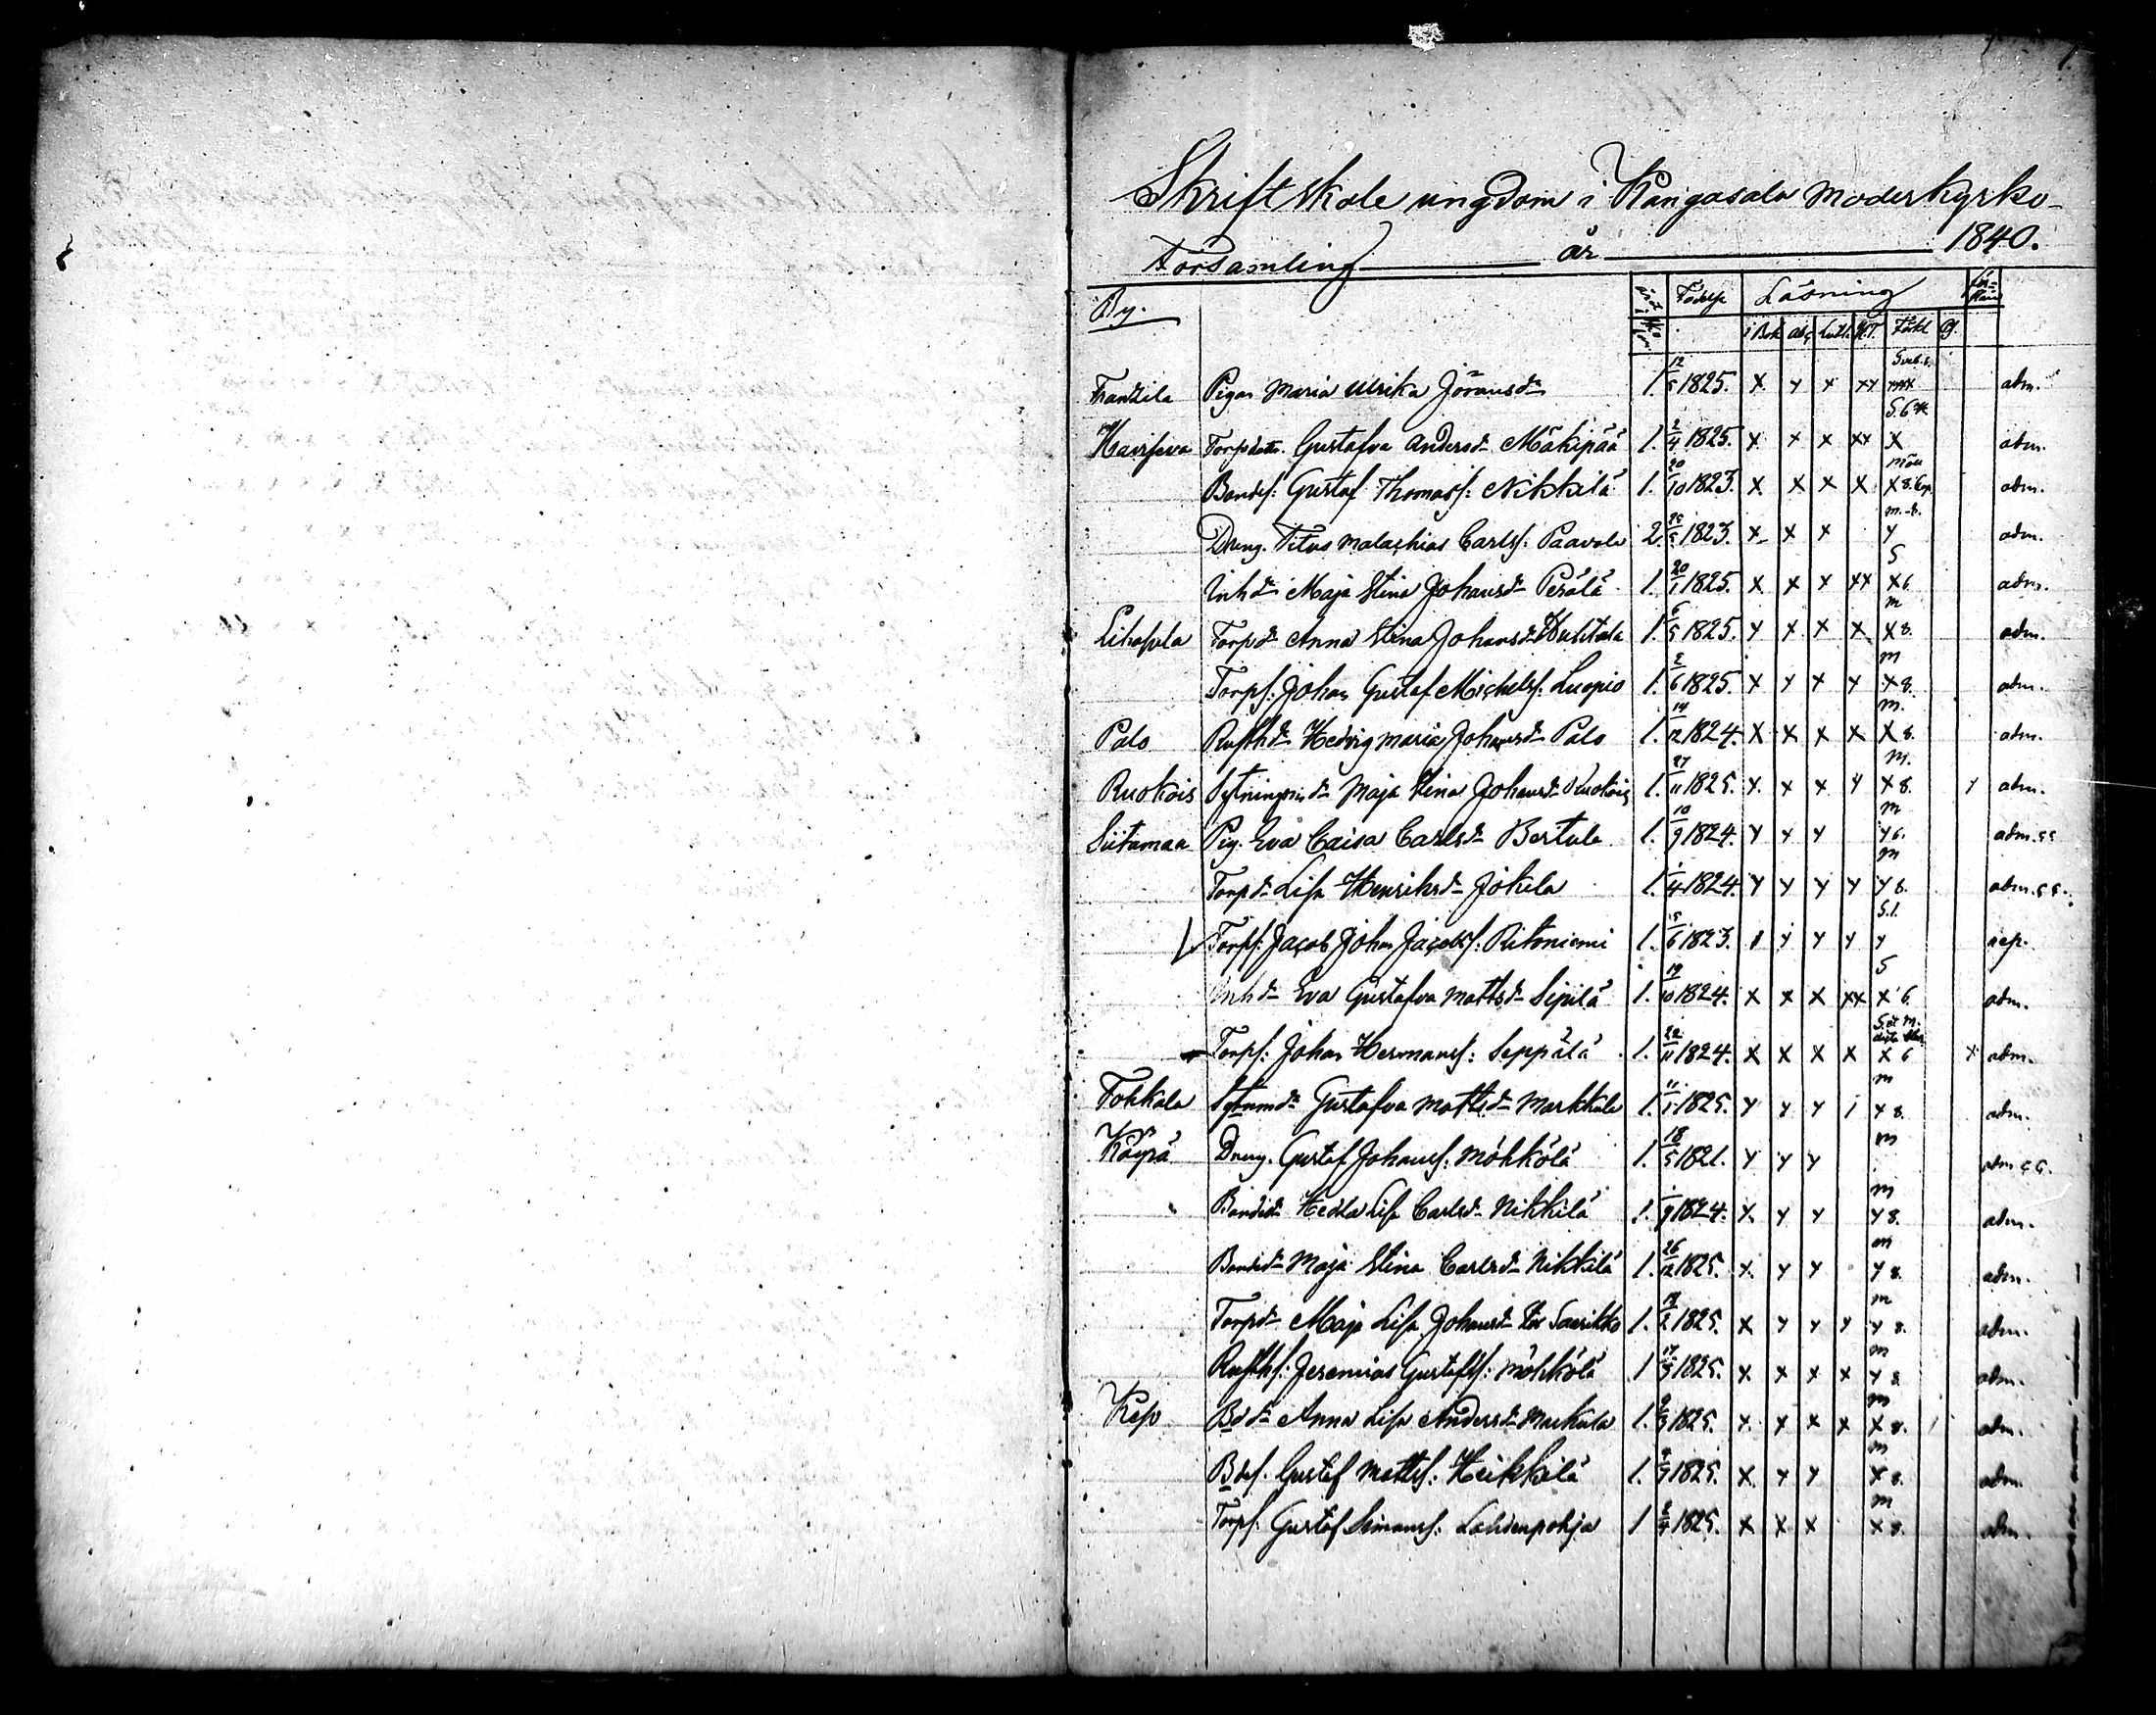 1.
Skriftskole ungdom i Kangasala moderkyrko-
Församling år 1840.
By. Födelse Läsning
i Bok abc Luth. H.T. Förkl.
Franzila Pigan Maria Ulrika Jöransdr 1. 12/5 1825. x y x xy adm.
Haviseva Torpdottr. Gustafva Andersdr Mäkipää 1. 2/4 1825. x x x xx x adm.
Bondes. Gustaf Thomass: Nikkilä 1. 20/10 1823. x x x x x 8. adm.
Dreng. Titus Malachias Carlss: Paavola 2. 25/5 1823. x x x y adm.
Inhdr Maja Stina Johansdr Perälä 1. 20/1 1825. x x x xx x 6 adm.
Lihasula Torpdr Anna Stina Johansdr Huhtala 1. 6/5 1825. y x x x x 8. adm.
Torps: Johan Gustaf Michelss. Luopio 1. 2/6 1825. x y x y x 8. adm.
Palo Rusthdr Hedvig Maria Johansdr Palo 1. 14/12 1824. x x x x x 8. adm.
Ruokois Sytningsmdr Maja Stina Johansdr Ruokois 1. 27/11 1825. x x x y x 8. y adm.
Siitamaa Pig. Eva Caisa Carlsdr Bertula 1. 10/9 1824. y y y y 6. adm. ss
Torpdr Lisa Henriksdr Jokela 1. 1/4 1824. y y y y y 8. adm. ss.
Torps: Jacob Johan Jacobss: Ritoniemi 1. 15/6 1823. y y y y rep.
Inhdr Eva Gustafva Mattsdr Sipilä 1. 19/10 1824. x x x xx x 6. adm.
Torps: Johan Hermanss: Seppälä 1. 22/11 1824. x x x x x 6 x adm.
Tohkala Sytnmdr Gustafva Mattsdr Markkula 1. 11/1 1825. y y y i x 8. adm.
Käyrä Dreng. Gustaf Johanss: Möhkölä 1. 18/5 1821. y y y m adm. ss.
Bondedr Hedda Lisa Carlsdr Nikkilä 1. 1/9 1824. x y y y 8. adm.
Bondedr Maja Stina Carlsdr Nikkilä 1. 26/12 1825. x. y y y 8. adm.
Torpdr Maja Lisa Johansdr Saarikko 1. 1825. x y y y y 8. adm.
Rusths: Jeremias Gustafss: Möhkölä 1 1825. x x x x y 8. adm.
Bdr Anna Lisa Andersdr Markula 1. 1825. x. x x x x 8. adm.
Bdes. Gustaf Mattss: Heikkilä 1. 1825. x y y x 8. adm.
Torps. Gustaf Simonss: Lahdenpohja 1 1825. x x x x 8. adm.